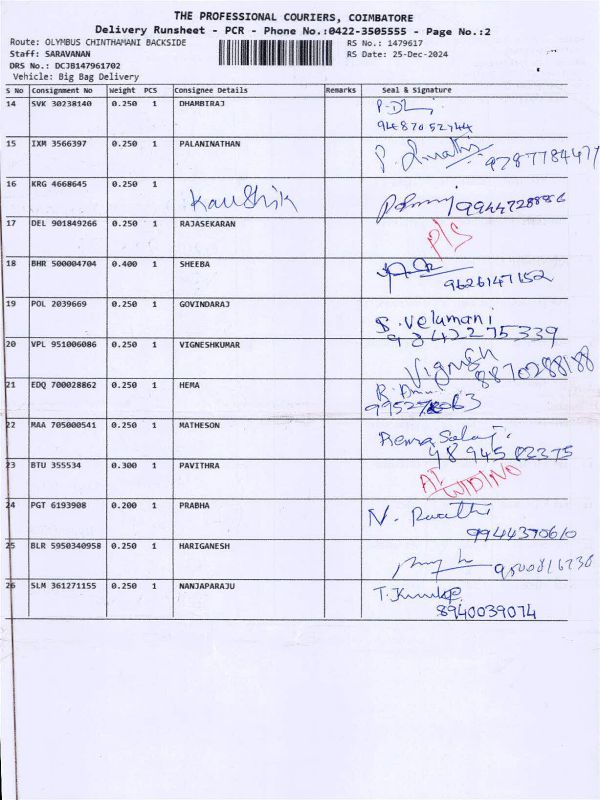 THE PROFESSIONAL COURIERS, COIMBATORE
Delivery Runsheet - PCR - Phone No.:0422-3505555 - Page No.:2
Route: OLYMBUS CHINTHAMANI BACKSIDE RS No.: 1479617
Staff: SARAVANAN RS Date: 25-Dec-2024
DRS No.: DCJB147961702
Vehicle: Big Bag Delivery
S No Consignment No Weight PCS Consignee Details Remarks Seal & Signature
14 SVK 30238140 0.250 1 DHAMBIRAJ
15 IXM 3566397 0.250 1 PALANINATHAN
9787784477
16 KRG 4668645 0.250 1 Kaushik
17 DEL 901849266 0.250 1 RAJASEKARAN P/S
18 BHR 500004704 0.400 1 SHEEBA
9626147152
19 POL 2039669 0.250 1 GOVINDARAJ S.Velumani
9842275339
20 VPL 951006086 0.250 1 VIGNESHKUMAR Vignesh
8870288188
21 EDQ 700028862 0.250 1 HEMA
22 MAA 705000541 0.250 1 MATHESON
9894582375
23 BTU 355534 0.300 1 PAVITHRA
24 PGT 6193908 0.200 1 PRABHA
9944370610
25 BLR 5950340958 0.250 1 HARIGANESH
26 SLM 361271155 0.250 1 NANJAPARAJU
8940039074